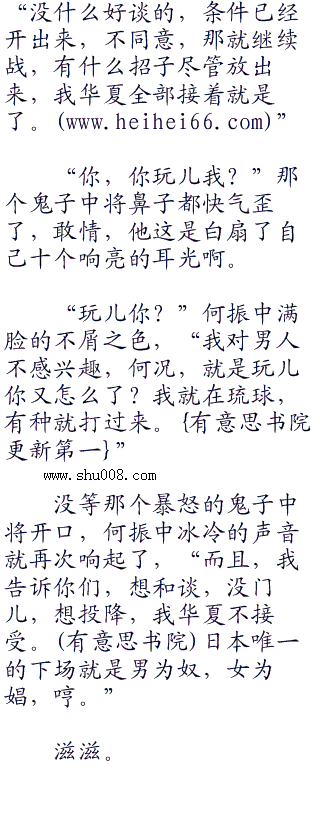 “没什么好谈的，条件已经
开出来，不同意，那就继续
战，有什么招子尽管放出
来，我华夏全部接着就是
了。(www.heihei66.com)”
“你，你玩儿我？”那
个鬼子中将鼻子都快气歪
了，敢情，他这是白扇了自
己十个响亮的耳光啊。
“玩儿你？”何振中满
脸的不屑之色，“我对男人
不感兴趣，何况，就是玩儿
你又怎么了？我就在琉球，
有种就打过来。{有意思书院
更新第一}”
www.shu008.com
没等那个暴怒的鬼子中
将开口，何振中冰冷的声音
就再次响起了，“而且，我
告诉你们，想和谈，没门
儿，想投降，我华夏不接
受。(有意思书院)日本唯一
的下场就是男为奴，女为
娼，哼。”
滋滋。